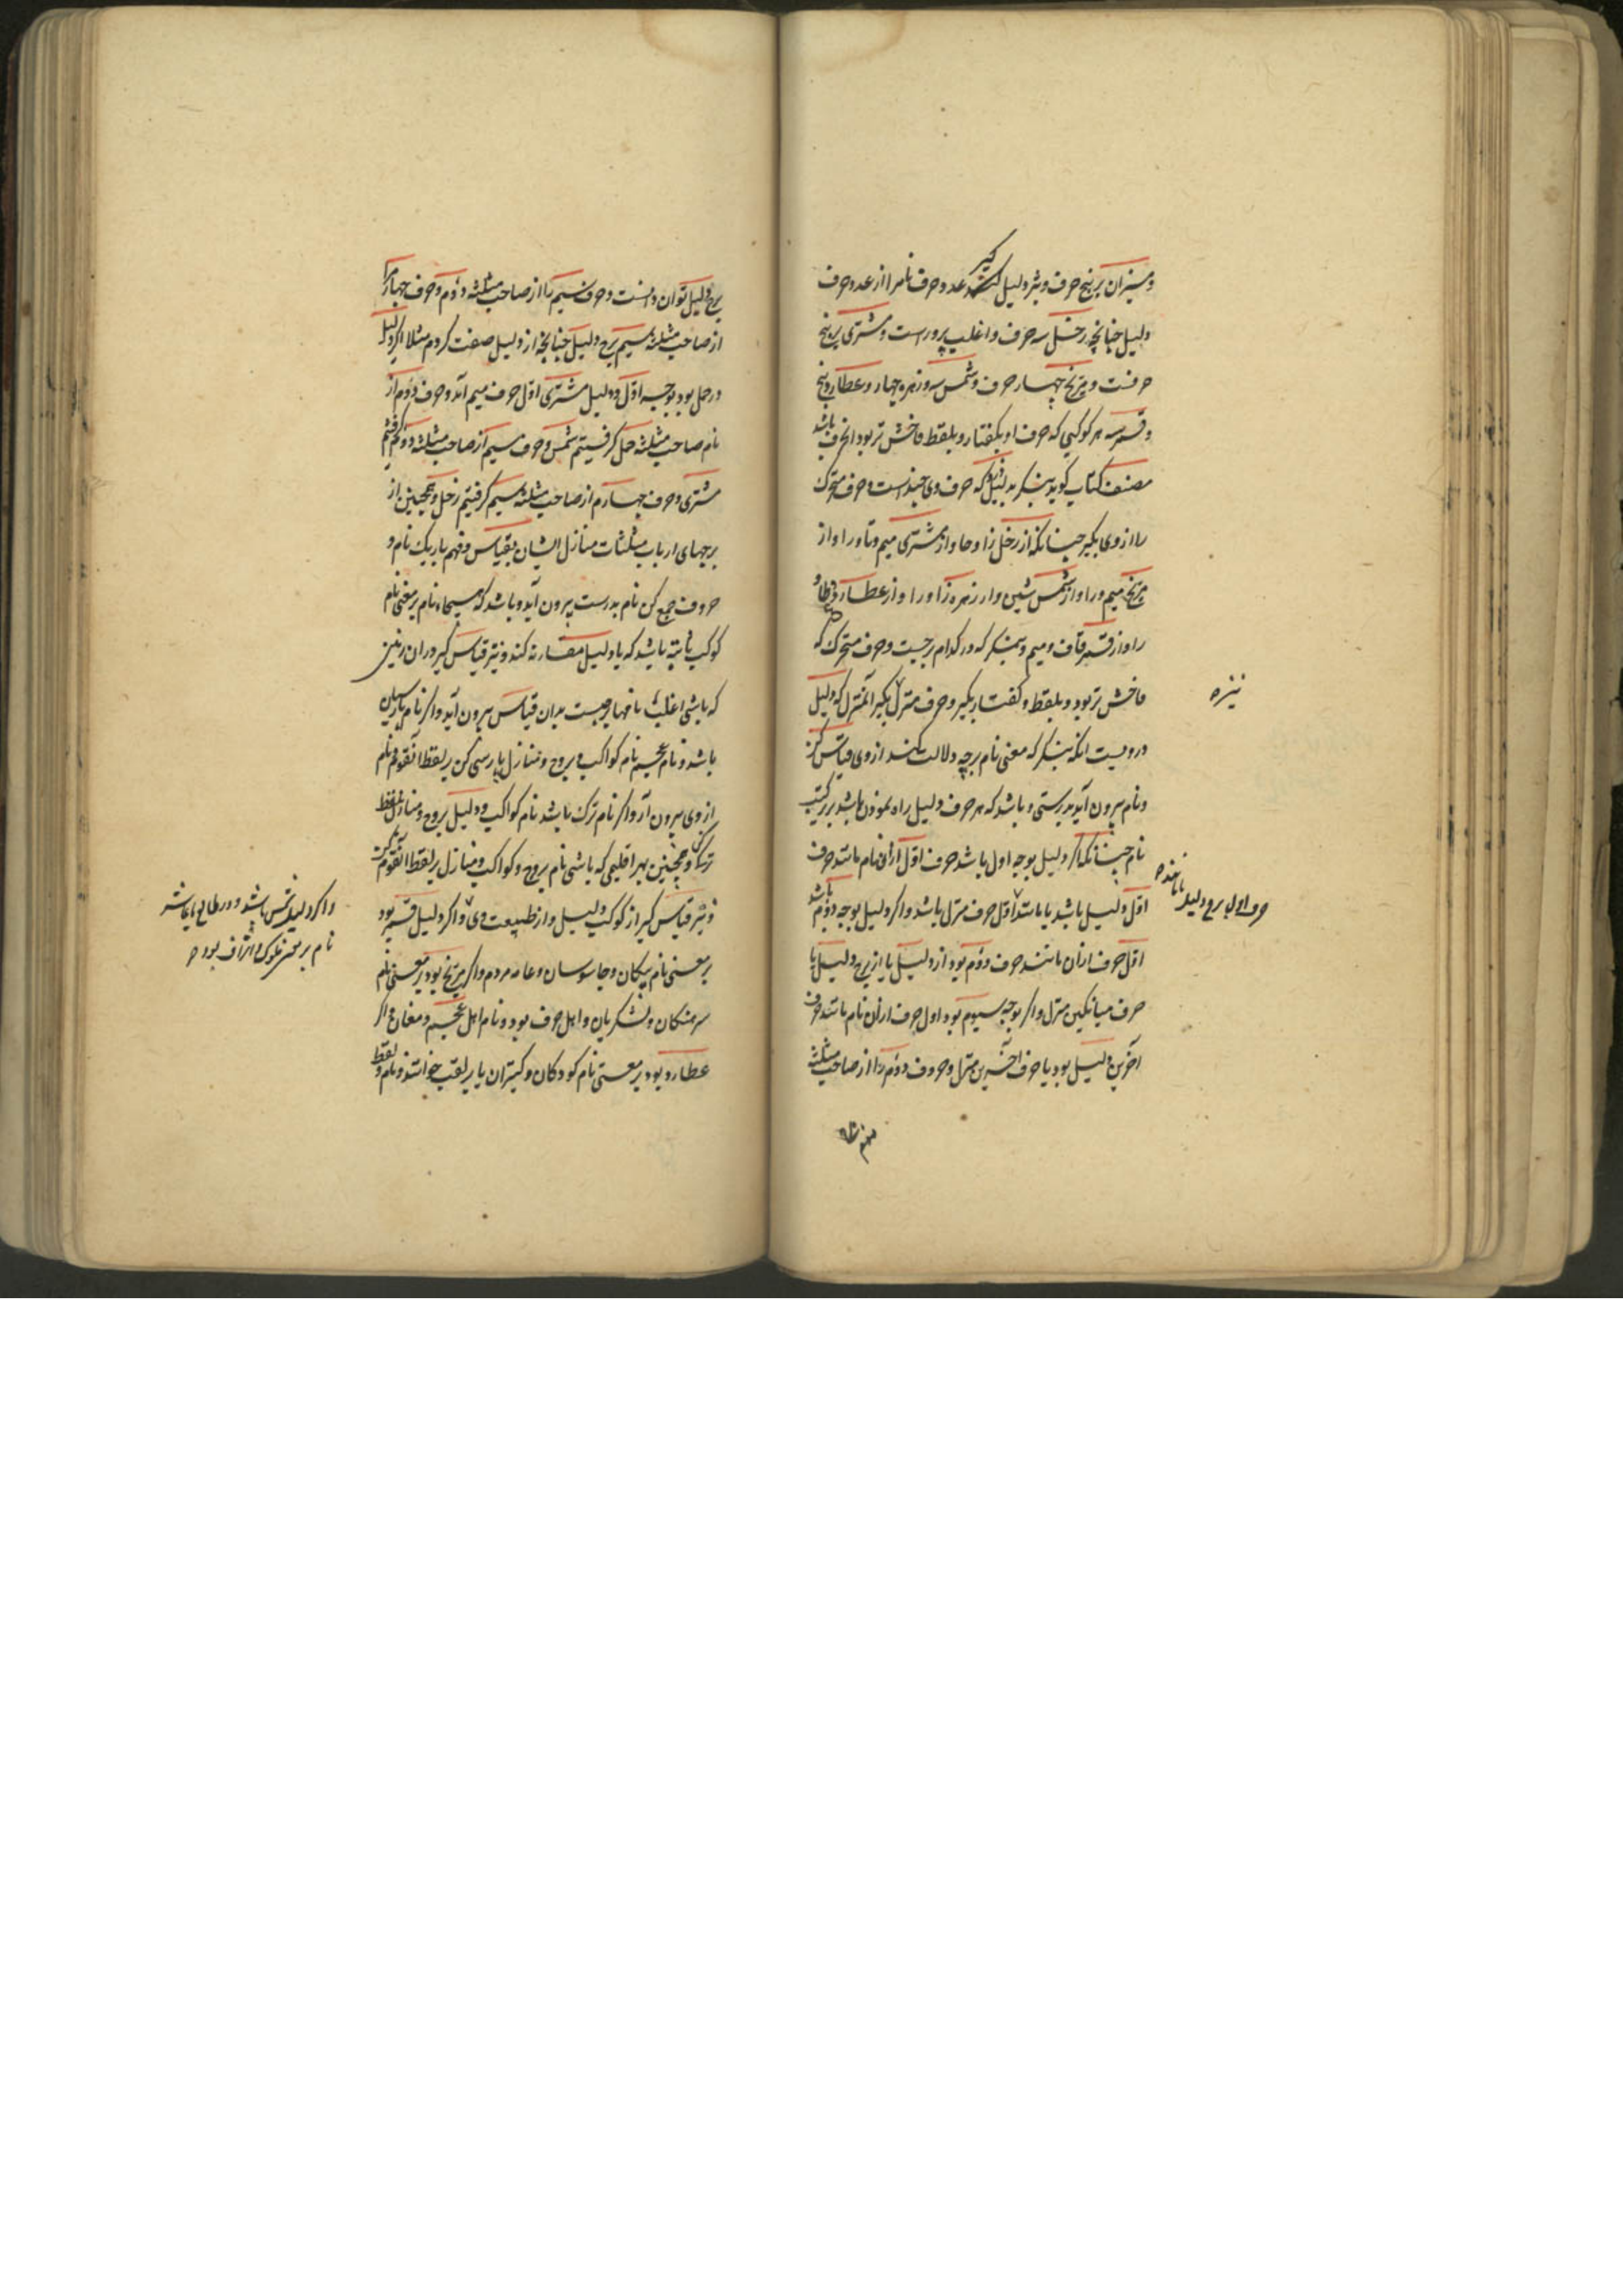 و میزان بر پنج حرف و نیز دلیل کند عدد و حرف نام را از عدد حرف
گیر
دلیل چنانچه زحل سه حرف و اغلب برو راست و مشتری بر پنج
حرفست و مریخ چهار حرف و شمس سه و زهره چهار و عطارد پنج
و قمر سه هر کوکبی که حرف او بگفتار و بلفظ فاحش تر بود انحرف باشد
مصنف کتاب گوید بنگر بدلیل که حرف وی چند است و حرف متحرک
را از وی بگیر چنانکه از زحل زا و حا و از مشتری میم و تا و را و از
مریخ میم و را و از شمس شین و از زهره زا و را و از عطارد عین و طا و
را و از قمر قاف و میم و بنگر که در کدام برجست و حرف متحرک که
فاحش تر بود و بلفظ و گفتار بگیر و حرف منزل بگیر آنمنزل که دلیل
درویست آنکه بنگر که معنی نام بر چه دلالت کند از وی قیاس کن
و نام بیرون آید بدرستی و باشد که هر حرف دلیل راه نمودن باشد بر ترکیب
نام چنانکه اگر دلیل بوجه اول باشد حرف اول از آن نام مانند حرف
اول دلیل باشد یا مانند اول حرف منزل باشد و اگر دلیل بوجه دوم باشد
اول حرف از آن مانند حرف دوم بود از دلیل یا از برج دلیل یا
حرف میانگین منزل و اگر بوجه سیوم بود اول حرف از آن نام مانند حرف
آخرین دلیل بود یا حرف آخرین منزل و حروف دوم را از صاحب مثلثه
نیزه
حرف اول برج دلیل یا مانند
برج دلیل توان دانست و حرف سیم را از صاحب مثلثه دوم و حرف چهارم را
از صاحب مثلثه سیم برج دلیل چنانچه از دلیل صفت کردم مثلا اگر دلیل
در حمل بود بوجه اول و دلیل مشتری اول حرف میم آید و حرف دوم از
نام صاحب مثلثه حمل گرفتیم شمس و حرف سیم از صاحب مثلثه دوم گرفتیم
مشتری و حرف چهارم از صاحب مثلثه سیم گرفتیم زحل و همچنین از
برجهای ارباب مثلثات منازل ایشان بقیاس و فهم باریک نام و
حروف جمع کن نام بدرست بیرون آید و باشد که همیجاه نام بر معنی نام
کوکب ثابته باشد که با دلیل مقارنه کند و نیز قیاس گیر در آن زمین
که باشی اغلب نامها بر چیست بدان قیاس بیرون آید و اگر نام پارسیان
باشد و نام عجم نام کواکب و بروج و منازل پارسی کن بر لفظ آنقوم و نام
از وی بیرون آر و اگر نام ترک باشد نام کواکب و دلیل بروج و منازل بلفظ
ترکی کن و همچنین بهر اقلیمی که باشی نام بروج و کواکب و منازل بر لفظ آنقوم کن
و نیز قیاس گیر از کوکب دلیل و از طبیعت وی و اگر دلیل قمر بود
بر معنی نام پیکان و جاسوسان و عامه مردم و اگر مریخ بود بر معنی نام
سرهنگان و لشکریان و اهل حرف بود و نام اهل عجم و مغان و اگر
عطارد بود بر معنی نام کودکان و کنیزان یا بر لقب خوانند و نام و لفظ
و اگر دلیل شمس باشد و در طالع یا عاشر
نام بر معنی ملوک و اشراف بود